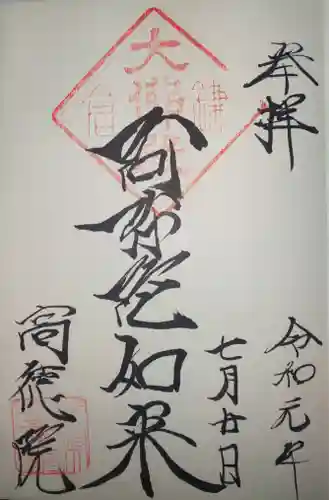 奉拝
令和元年
七月廿日
阿弥陀如来
高徳院
大
鎌
倉